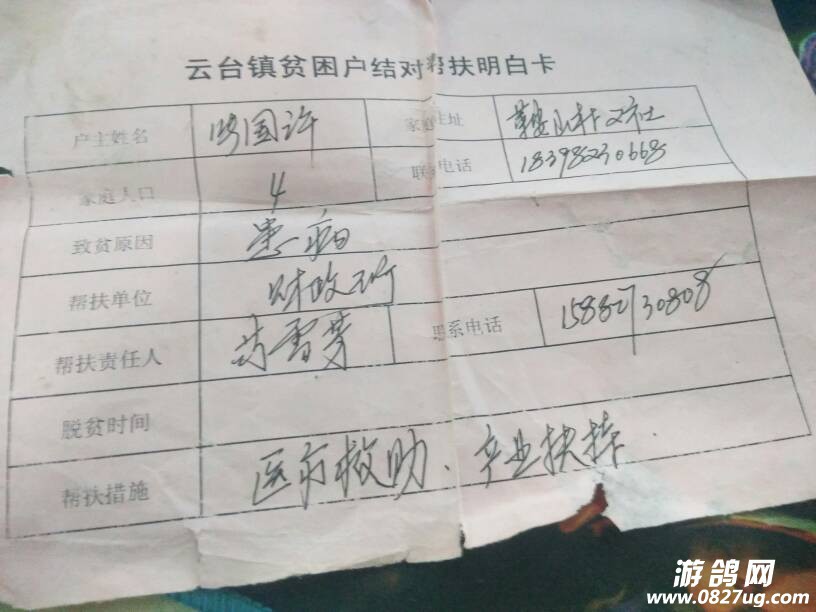 云台镇贫困户结对帮扶明白卡
户主姓名 国许 家庭住址 鞍山村 社
家庭人口 4 联系电话 18398230668
致贫原因 患病
帮扶单位 财政所
帮扶责任人 雪芳 联系电话
脱贫时间
帮扶措施 医疗救助、产业扶持.
游鸽网
www.0827ug.com